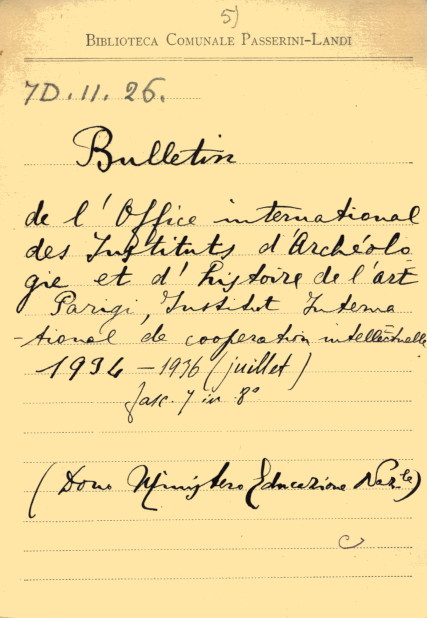 5)
BIBLIOTECA COMUNALE PASSERINI-LANDI
7D.II.26.
Bulletin
de l'Office international
des Instituts d'Archéolo
gie et d'histoire de l'art
Parigi, Institut Interna
-tional de cooperation intellectuelle
1934 - 1936 (juillet)
fasc. 7 in 8°
(Dono Ministero Educazione Naz.le)
c